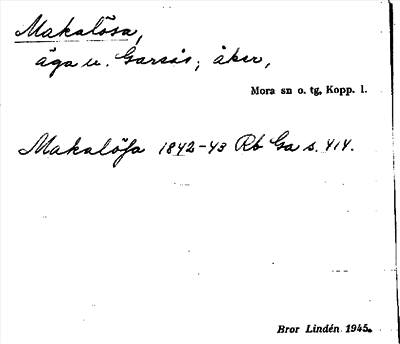 Makalösa,
äga u. Garsås; åker,
Mora sn o. tg, Kopp. l.
Makalösa 1842-43 Rb Ga s. 414.
Bror Lindén 1945.